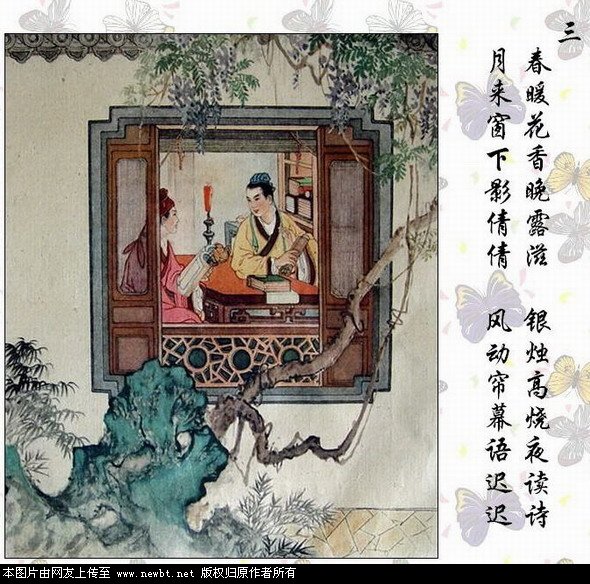 三
春暖花香晚露滋 银烛高烧夜读诗
月来窗下影倩倩 风动帘幕语迟迟
本图片由网友上传至 www.newbt.net 版权归原作者所有